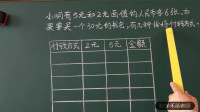 小明有5元和2元面值的人民币各6张,如
果要买一个30元的书包,有几种恰好付的方式?
付钱方式 2元 5元 金额